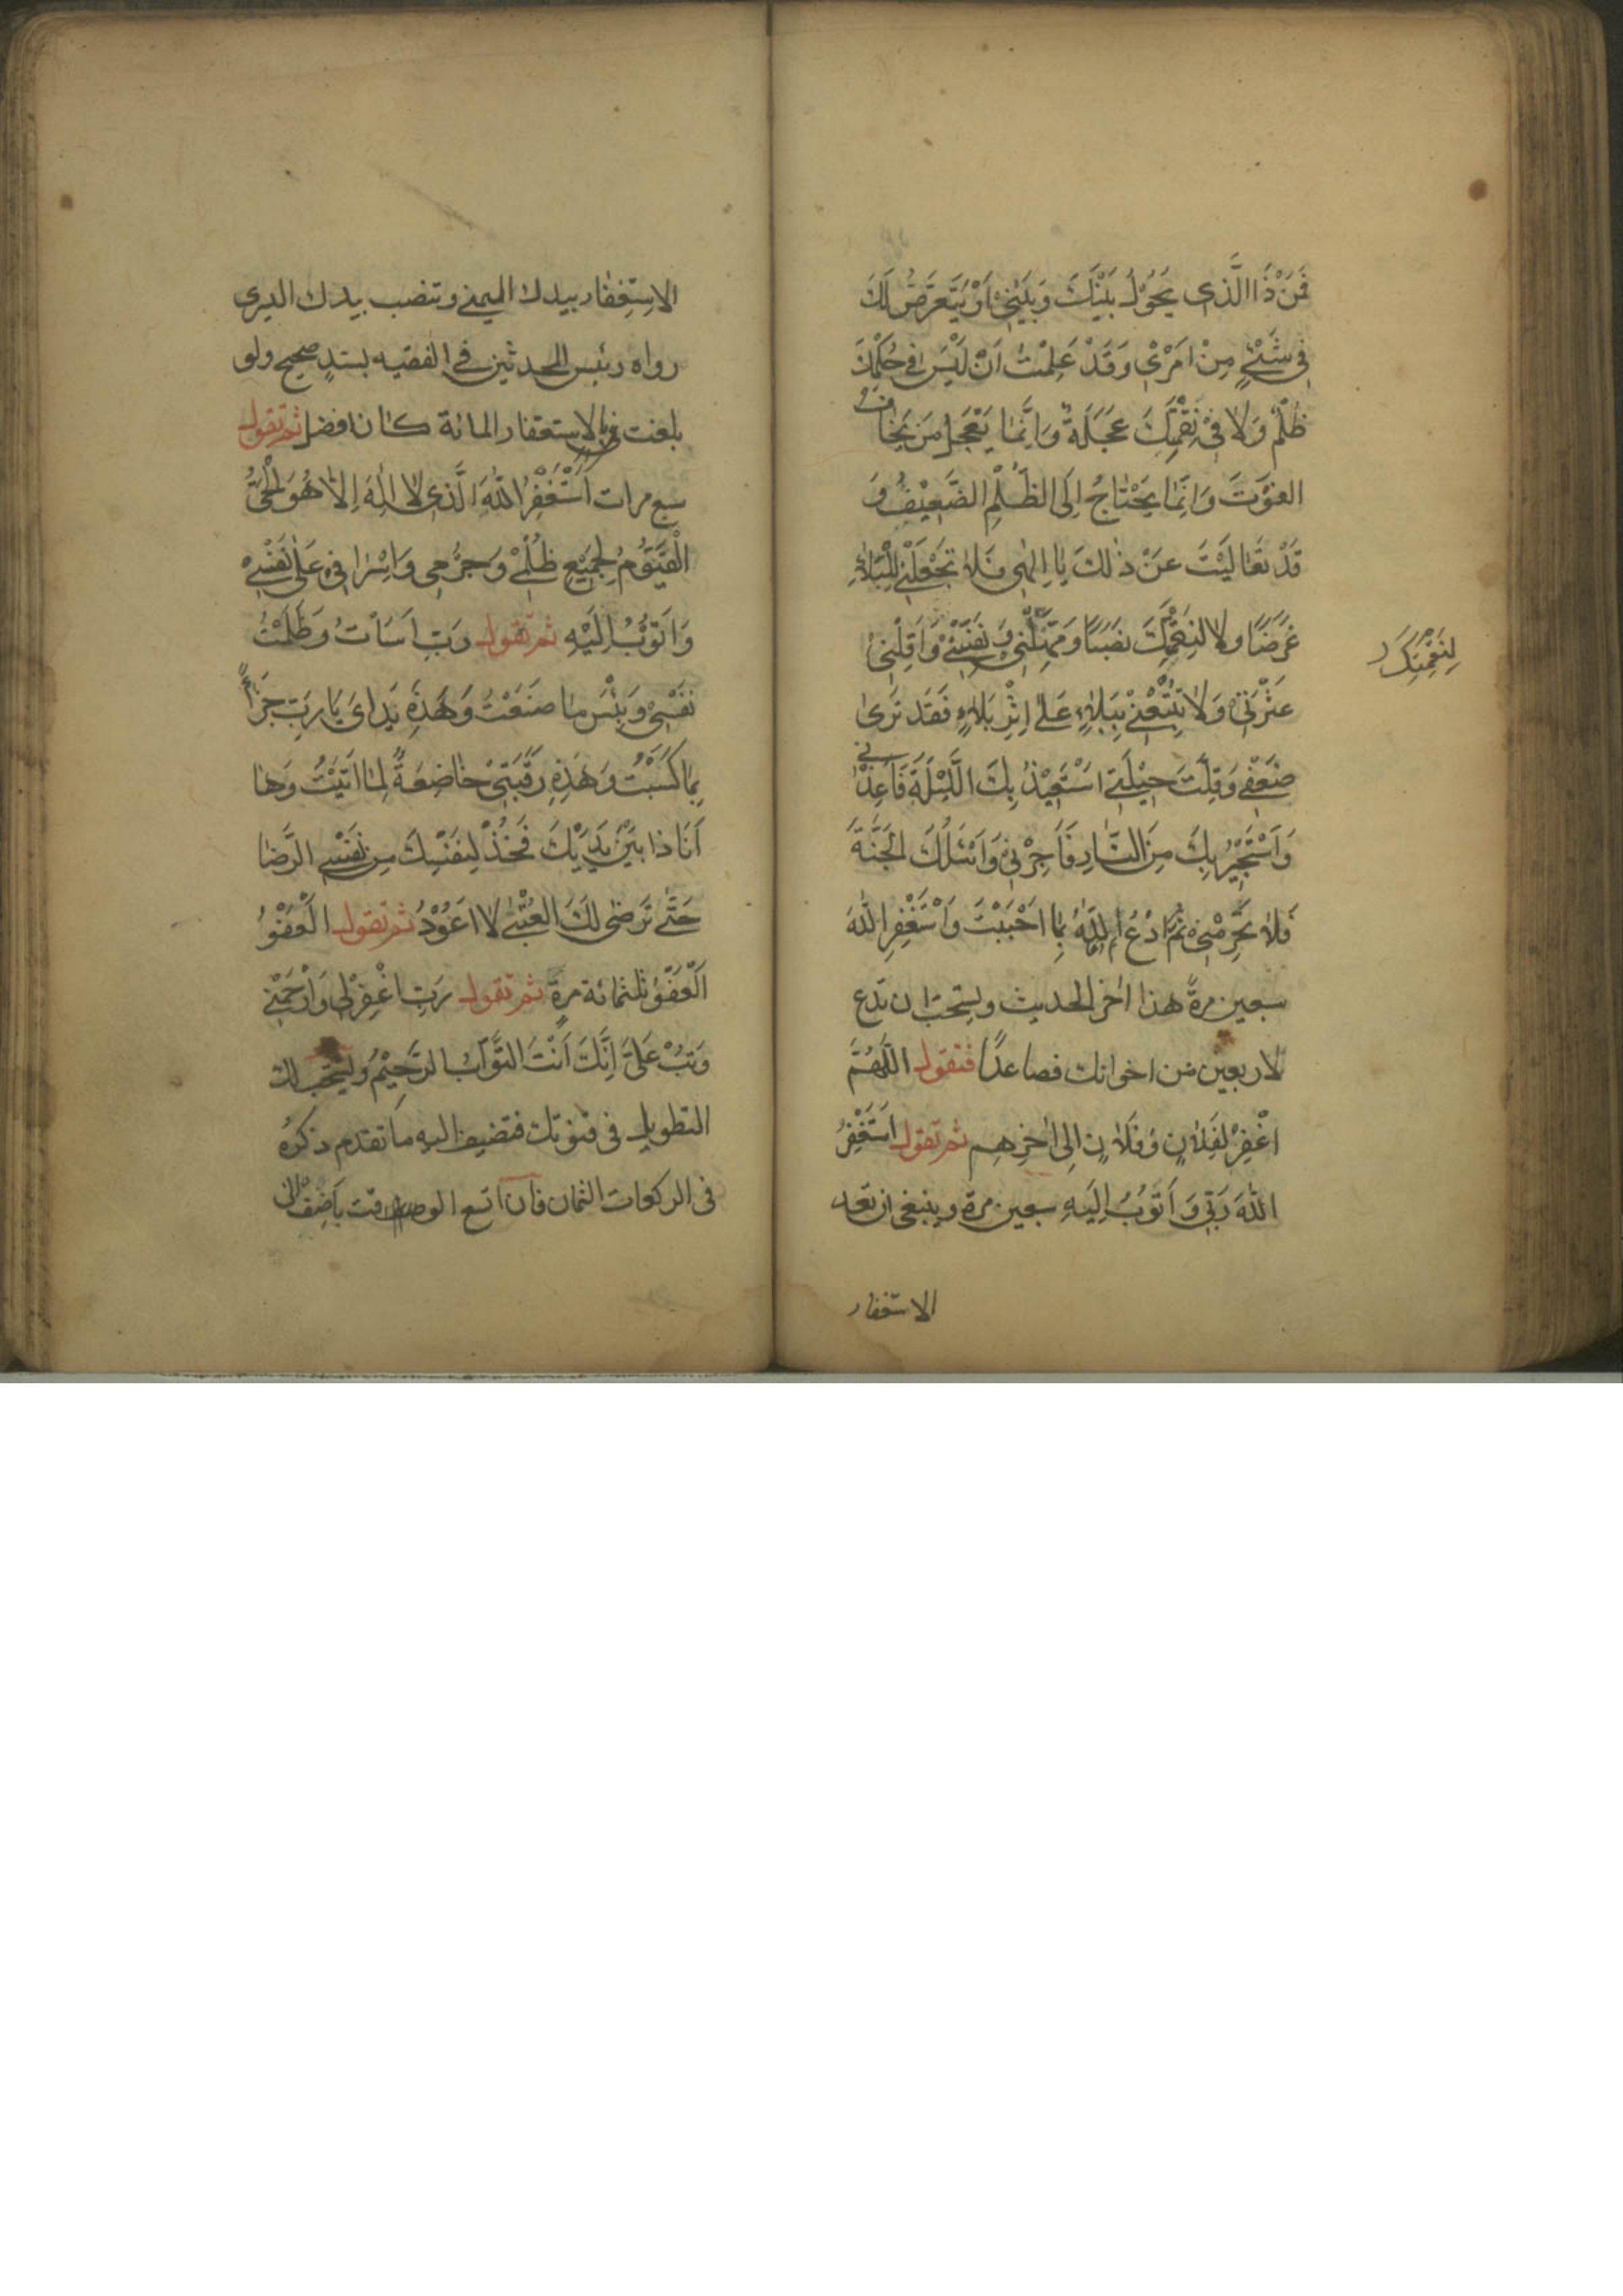 فَمَنْ ذَا الَّذي يَحُوْلُ بَيْنَكَ وَبَيْني اَوْ يَتَعَرَّضُ لَكَ
في شَيْءٍ مِنْ اَمْرِيْ وَقَدْ عَلِمْتُ اَنْ لَيْسَ في حُكْمِكَ
ظُلْمٌ وَلا في نِقْمَتِكَ عَجَلَةٌ وَاِنَّمٰا يَعْجَلُ مَنْ يَخٰافُ
الفَوْتَ وَاِنَّمٰا يَحْتٰاجُ اِلَى الظُّلْمِ الضَّعِيْفُ وَ
قَدْ تَعٰالَيْتَ عَنْ ذٰلِكَ يٰا اِلٰهي فَلاٰ تَجْعَلْني لِلْبَلاٰءِ
غَرَضًا ولا لِنِقْمَتِكَ نَصَبًا وَمَهِّلْني وَ نَفِّسْنِيْ وَاَقِلْني
لِنَقِمَتِكَ
عَثْرَتي وَلاٰ تُتْبِعْني بِبَلاٰءٍ عَلىٰ اِثْرِ بَلاٰءٍ فَقَدْ تَرىٰ
ضَعْفي وَقِلَّتَ حِيْلَتي اَسْتَعِيْذُ بِكَ اللَّيْلَةَ فَاَعِذْني
وَاَسْتَجِيْرُ بِكَ مِنَ النّٰارِ فَاَجِرْني وَاَسْئَلُكَ الْجَنَّةَ
فَلاٰ تَحْرِمْني ثمّ ادْعُ اللّٰهَ بِمٰا اَحْبَبْتَ وَاسْتَغْفِرِ اللّٰهَ
سبعين مرةً هذا اٰخر الحديث ويستحبّ ان تدع
لاربعين من اخوانك فصاعدًا فتقول اللّٰهُمَّ
اغْفِرْ لِفُلاٰنٍ وَفُلاٰنٍ اِلى اٰخِرِهِم ثم تقول اَسْتَغْفِرُ
اللّٰهَ رَبّي وَاَتُوْبُ اِلَيْهِ سبعين مرة وينبغي ان تعد
الاستغفار
الاِسْتِغْفٰار بيدك اليمنى وتنصب بيدك اليسرى
رواه رئيس المحدثين في الفقيه بسندٍ صحيح ولو
بلغت في الاستغفار المائة كان افضل ثم تقول
سبع مرات اَسْتَغْفِرُ اللّٰهَ الَّذي لاٰ اِلٰهَ اِلاّٰ هُوَ الْحَيُّ
الْقَيُّوْمُ لِجَمِيْعِ ظُلْمي وَجُرْمي وَاِسْرٰافي عَلىٰ نَفْسي
وَاَتُوْبُ اِلَيْهِ ثم تقول رَبِّ اَسَأْتُ وَظَلَمْتُ
نَفْسي وَبِئْسَ مٰا صَنَعْتُ وَهٰذِهِ يَدٰاىَ يٰا رَبِّ جَزٰاءً
بِمٰا كَسَبْتُ وَهٰذِهِ رَقَبَتي خٰاضِعَةً لِمٰا اَتَيْتُ وَهٰا
اَنَا ذٰا بَيْنَ يَدَيْكَ فَخُذْ لِنَفْسِكَ مِنْ نَفْسي الرِّضٰا
حَتّٰى تَرْضٰى لَكَ الْعُتْبٰى لاٰ اَعُوْدُ ثم تقول الْعَفْوُ
الْعَفْوُ ثلثمائة مرةً ثم تقول رَبِّ اغْفِرْ لي وَارْحَمْني
وَتُبْ عَلَيَّ اِنَّكَ اَنْتَ التَّوّٰابُ الرَّحِيْمُ ويستحب لك
التطويل في قنوتك فتضيف اليه ما تقدم ذكرهُ
في الركعات الثمان فان اتسع الوقت فاَضِفْ الى